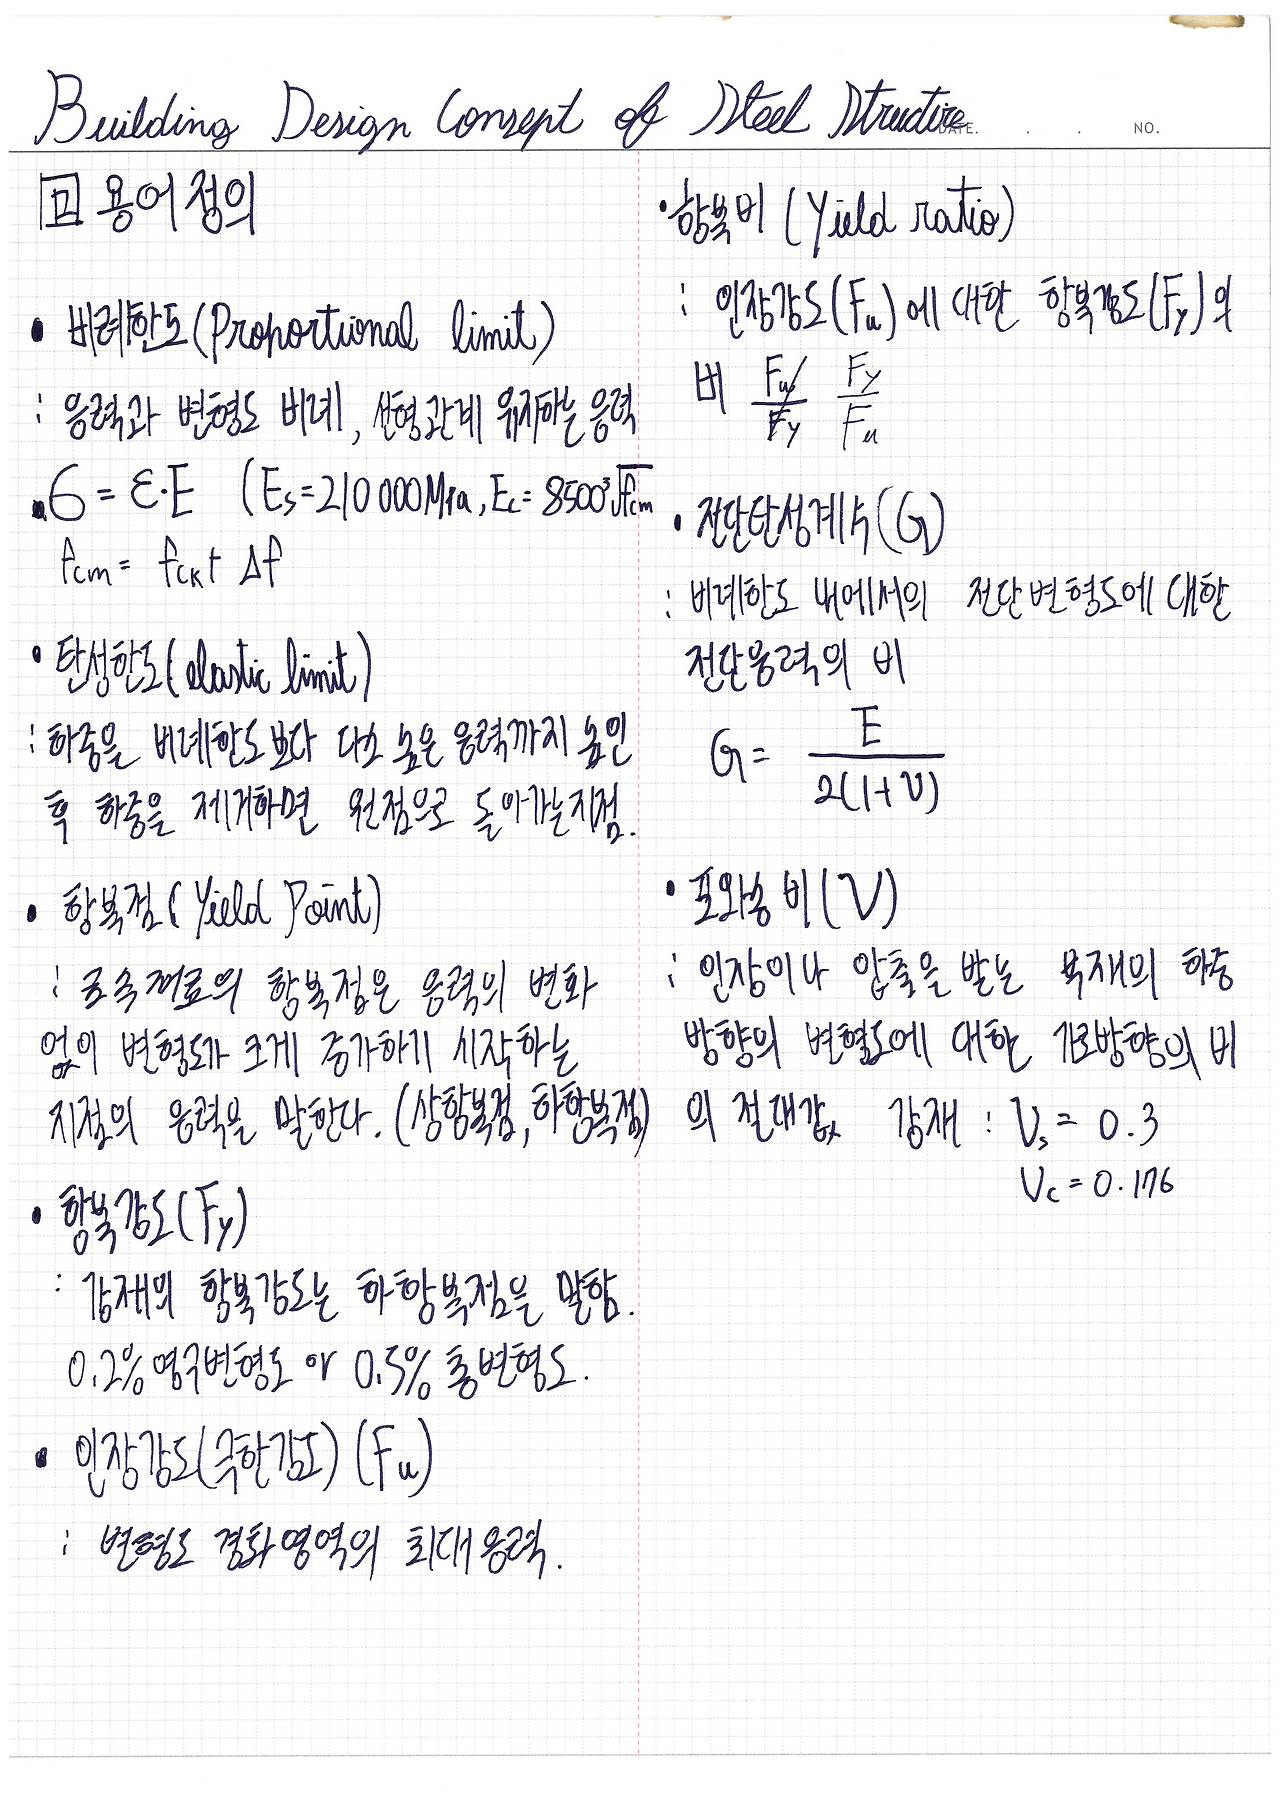 Building Design Consept of Steel Structure
DATE. . . NO.
용어정의
• 비례한도(Proportional limit)
: 응력과 변형도 비례, 선형관계 유지하는 응력
σ = ε·E (Es=210000Mpa, Ec= 8500³√fcm
fcm = fck + Δf
• 탄성한도(elastic limit)
: 하중을 비례한도보다 다소 높은 응력까지 높인
후 하중을 제거하면 원점으로 돌아가는지점.
• 항복점(Yield Point)
: 금속재료의 항복점은 응력의 변화
없이 변형도가 크게 증가하기 시작하는
지점의 응력을 말한다. (상항복점, 하항복점)
• 항복강도(Fy)
: 강재의 항복강도는 하항복점을 말함.
0.2% 영구변형도 or 0.5% 총변형도.
• 인장강도(극한강도) (Fu)
: 변형도 경화영역의 최대응력.
• 항복비 (Yield ratio)
: 인장강도(Fu)에 대한 항복강도(Fy)의
비 Fu/Fy Fy/Fu
• 전단탄성계수(G)
: 비례한도 내에서의 전단변형도에 대한
전단응력의 비
G = E / 2(1+ν)
• 포와송 비(ν)
: 인장이나 압축을 받는 부재의 하중
방향의 변형도에 대한 가로방향의 비
의 절대값 강재 : νs = 0.3
νc = 0.176